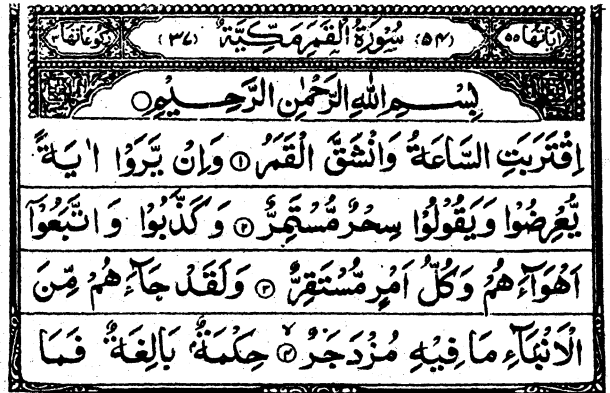 اٰيَاتُهَا ٥٥ (٥٤) سُوْرَةُ الْقَمَرِ مَكِّيَّةٌ (٣٧) رُكُوْعَاتُهَا ٣
بِسْمِ اللهِ الرَّحْمٰنِ الرَّحِيْمِ
اِقْتَرَبَتِ السَّاعَةُ وَانْشَقَّ الْقَمَرُ ۝١ وَاِنْ يَّرَوْا اٰيَةً
يُّعْرِضُوْا وَيَقُوْلُوْا سِحْرٌ مُّسْتَمِرٌّ ۝٢ وَكَذَّبُوْا وَاتَّبَعُوْٓا
اَهْوَآءَهُمْ وَكُلُّ اَمْرٍ مُّسْتَقِرٌّ ۝٣ وَلَقَدْ جَآءَهُمْ مِّنَ
الْاَنْۢبَآءِ مَا فِيْهِ مُزْدَجَرٌ ۝٤ حِكْمَةٌۢ بَالِغَةٌ فَمَا